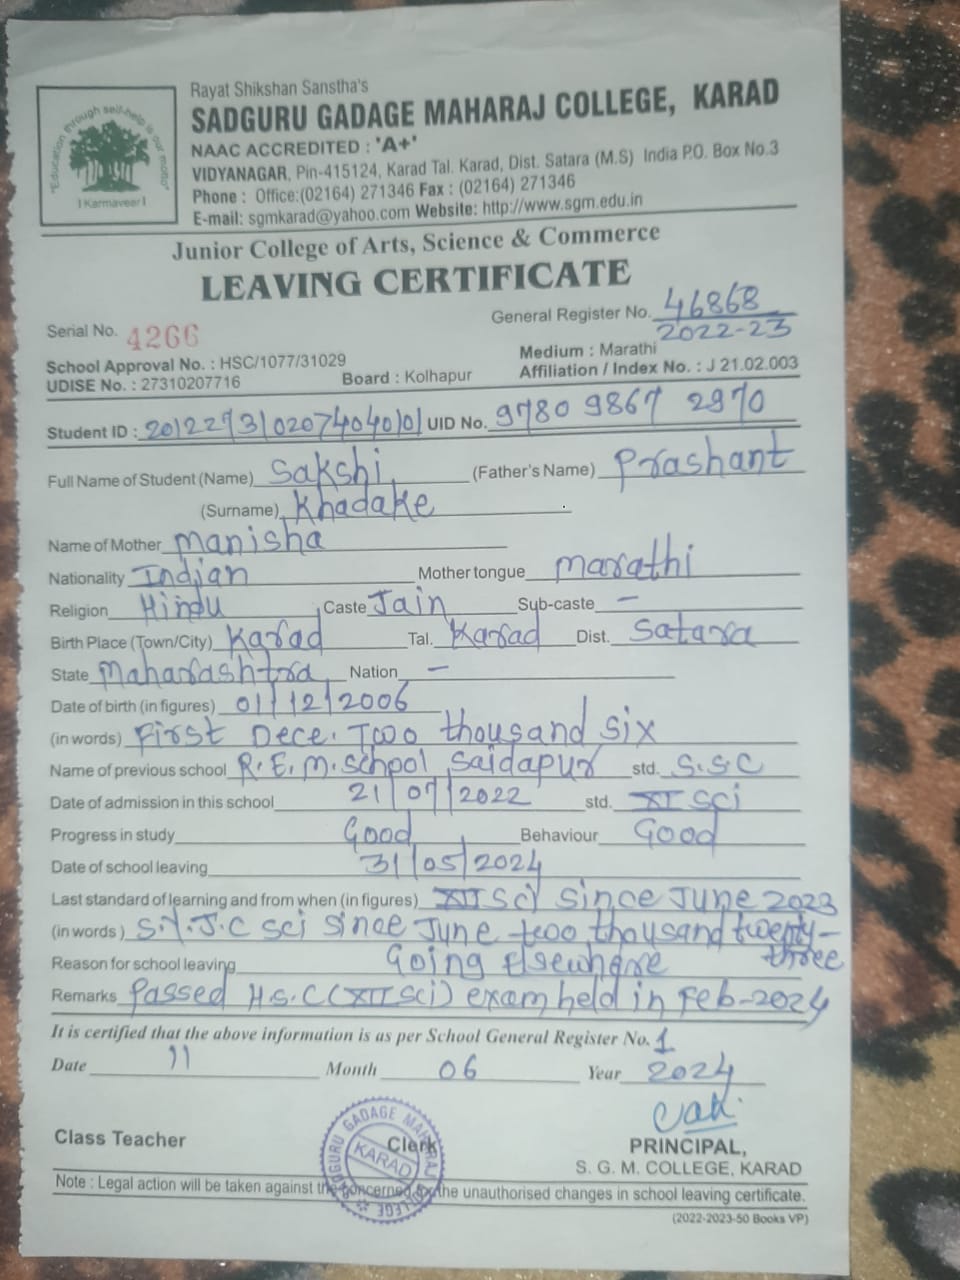 Rayat Shikshan Sanstha's
SADGURU GADAGE MAHARAJ COLLEGE, KARAD
NAAC ACCREDITED : 'A+'
VIDYANAGAR, Pin-415124, Karad Tal. Karad, Dist. Satara (M.S) India P.O. Box No.3
Phone : Office:(02164) 271346 Fax : (02164) 271346
E-mail: sgmkarad@yahoo.com Website: http://www.sgm.edu.in
"Education through self-help is our motto"
Karmaveer
Junior College of Arts, Science & Commerce
LEAVING CERTIFICATE
Serial No. 4266 General Register No. 46868
2022-23
School Approval No. : HSC/1077/31029 Medium : Marathi
UDISE No. : 27310207716 Board : Kolhapur Affiliation / Index No. : J 21.02.003
Student ID : UID No. 9780 9867 2970
Full Name of Student (Name) Sakshi (Father's Name) Prashant
(Surname) Khadake
Name of Mother Manisha
Nationality Indian Mother tongue Marathi
Religion Hindu Caste Jain Sub-caste –
Birth Place (Town/City) Karad Tal. Karad Dist. Satara
State Maharashtra Nation –
Date of birth (in figures) 01/12/2006
(in words) First Dece. Two thousand six
Name of previous school R.E.M. School Saidapur std. S.S.C
Date of admission in this school 21/07/2022 std. XI Sci
Progress in study Good Behaviour Good
Date of school leaving 31/05/2024
Last standard of learning and from when (in figures) XII Sci since June 2023
(in words) S.Y.J.C Sci since June two thousand twenty-
three
Reason for school leaving Going Elsewhere
Remarks Passed H.S.C (XII Sci) exam held in Feb-2024
It is certified that the above information is as per School General Register No. 1
Date 11 Month 06 Year 2024
Class Teacher Clerk PRINCIPAL,
S. G. M. COLLEGE, KARAD
SADGURU GADAGE MAHARAJ COLLEGE
KARAD
Note : Legal action will be taken against the concerned for the unauthorised changes in school leaving certificate.
(2022-2023-50 Books VP)